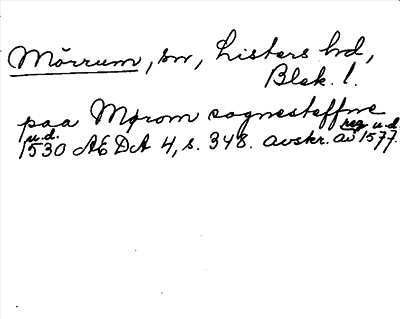 Mörrum, sn, Listers hd,
Blek. l.
paa Mørom sognesteffne
u.d. reg u.d.
1530 AEDA 4, s. 348. avskr. av 1577.